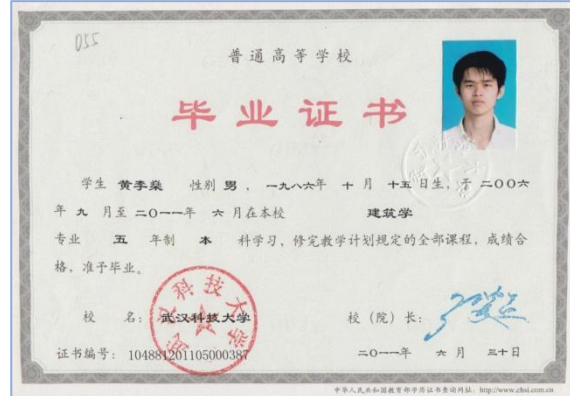 055
普通高等学校
毕业证书
学生 黄李燊 性别 男 ，一九八六年 十 月 十五 日生，于 二〇〇六
年 九 月至 二〇一一年 六 月在本校 建筑学
专业 五 年制 本 科学习，修完教学计划规定的全部课程，成绩合
格，准予毕业。
校 名： 武汉科技大学 校（院）长：
证书编号： 104881201105000387 二〇一一年 六 月 三十日
武汉科技大学
中华人民共和国教育部学历证书查询网址：http://www.chsi.com.cn